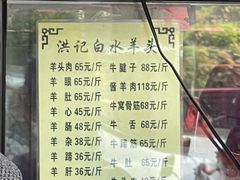 洪记白水羊头
羊头肉 65元/斤
羊 眼 65元/斤
羊 肚 65元/斤
羊 心 45元/斤
羊 肠 48元/斤
羊 杂 38元/斤
羊 蹄 36元/斤
羊 肝 36元/斤
牛腱子 88元/斤
酱羊肉118元/斤
牛窝骨筋68元/斤
牛 舌 68元/斤
牛蹄筋 55元/斤
牛 肚 65元/斤